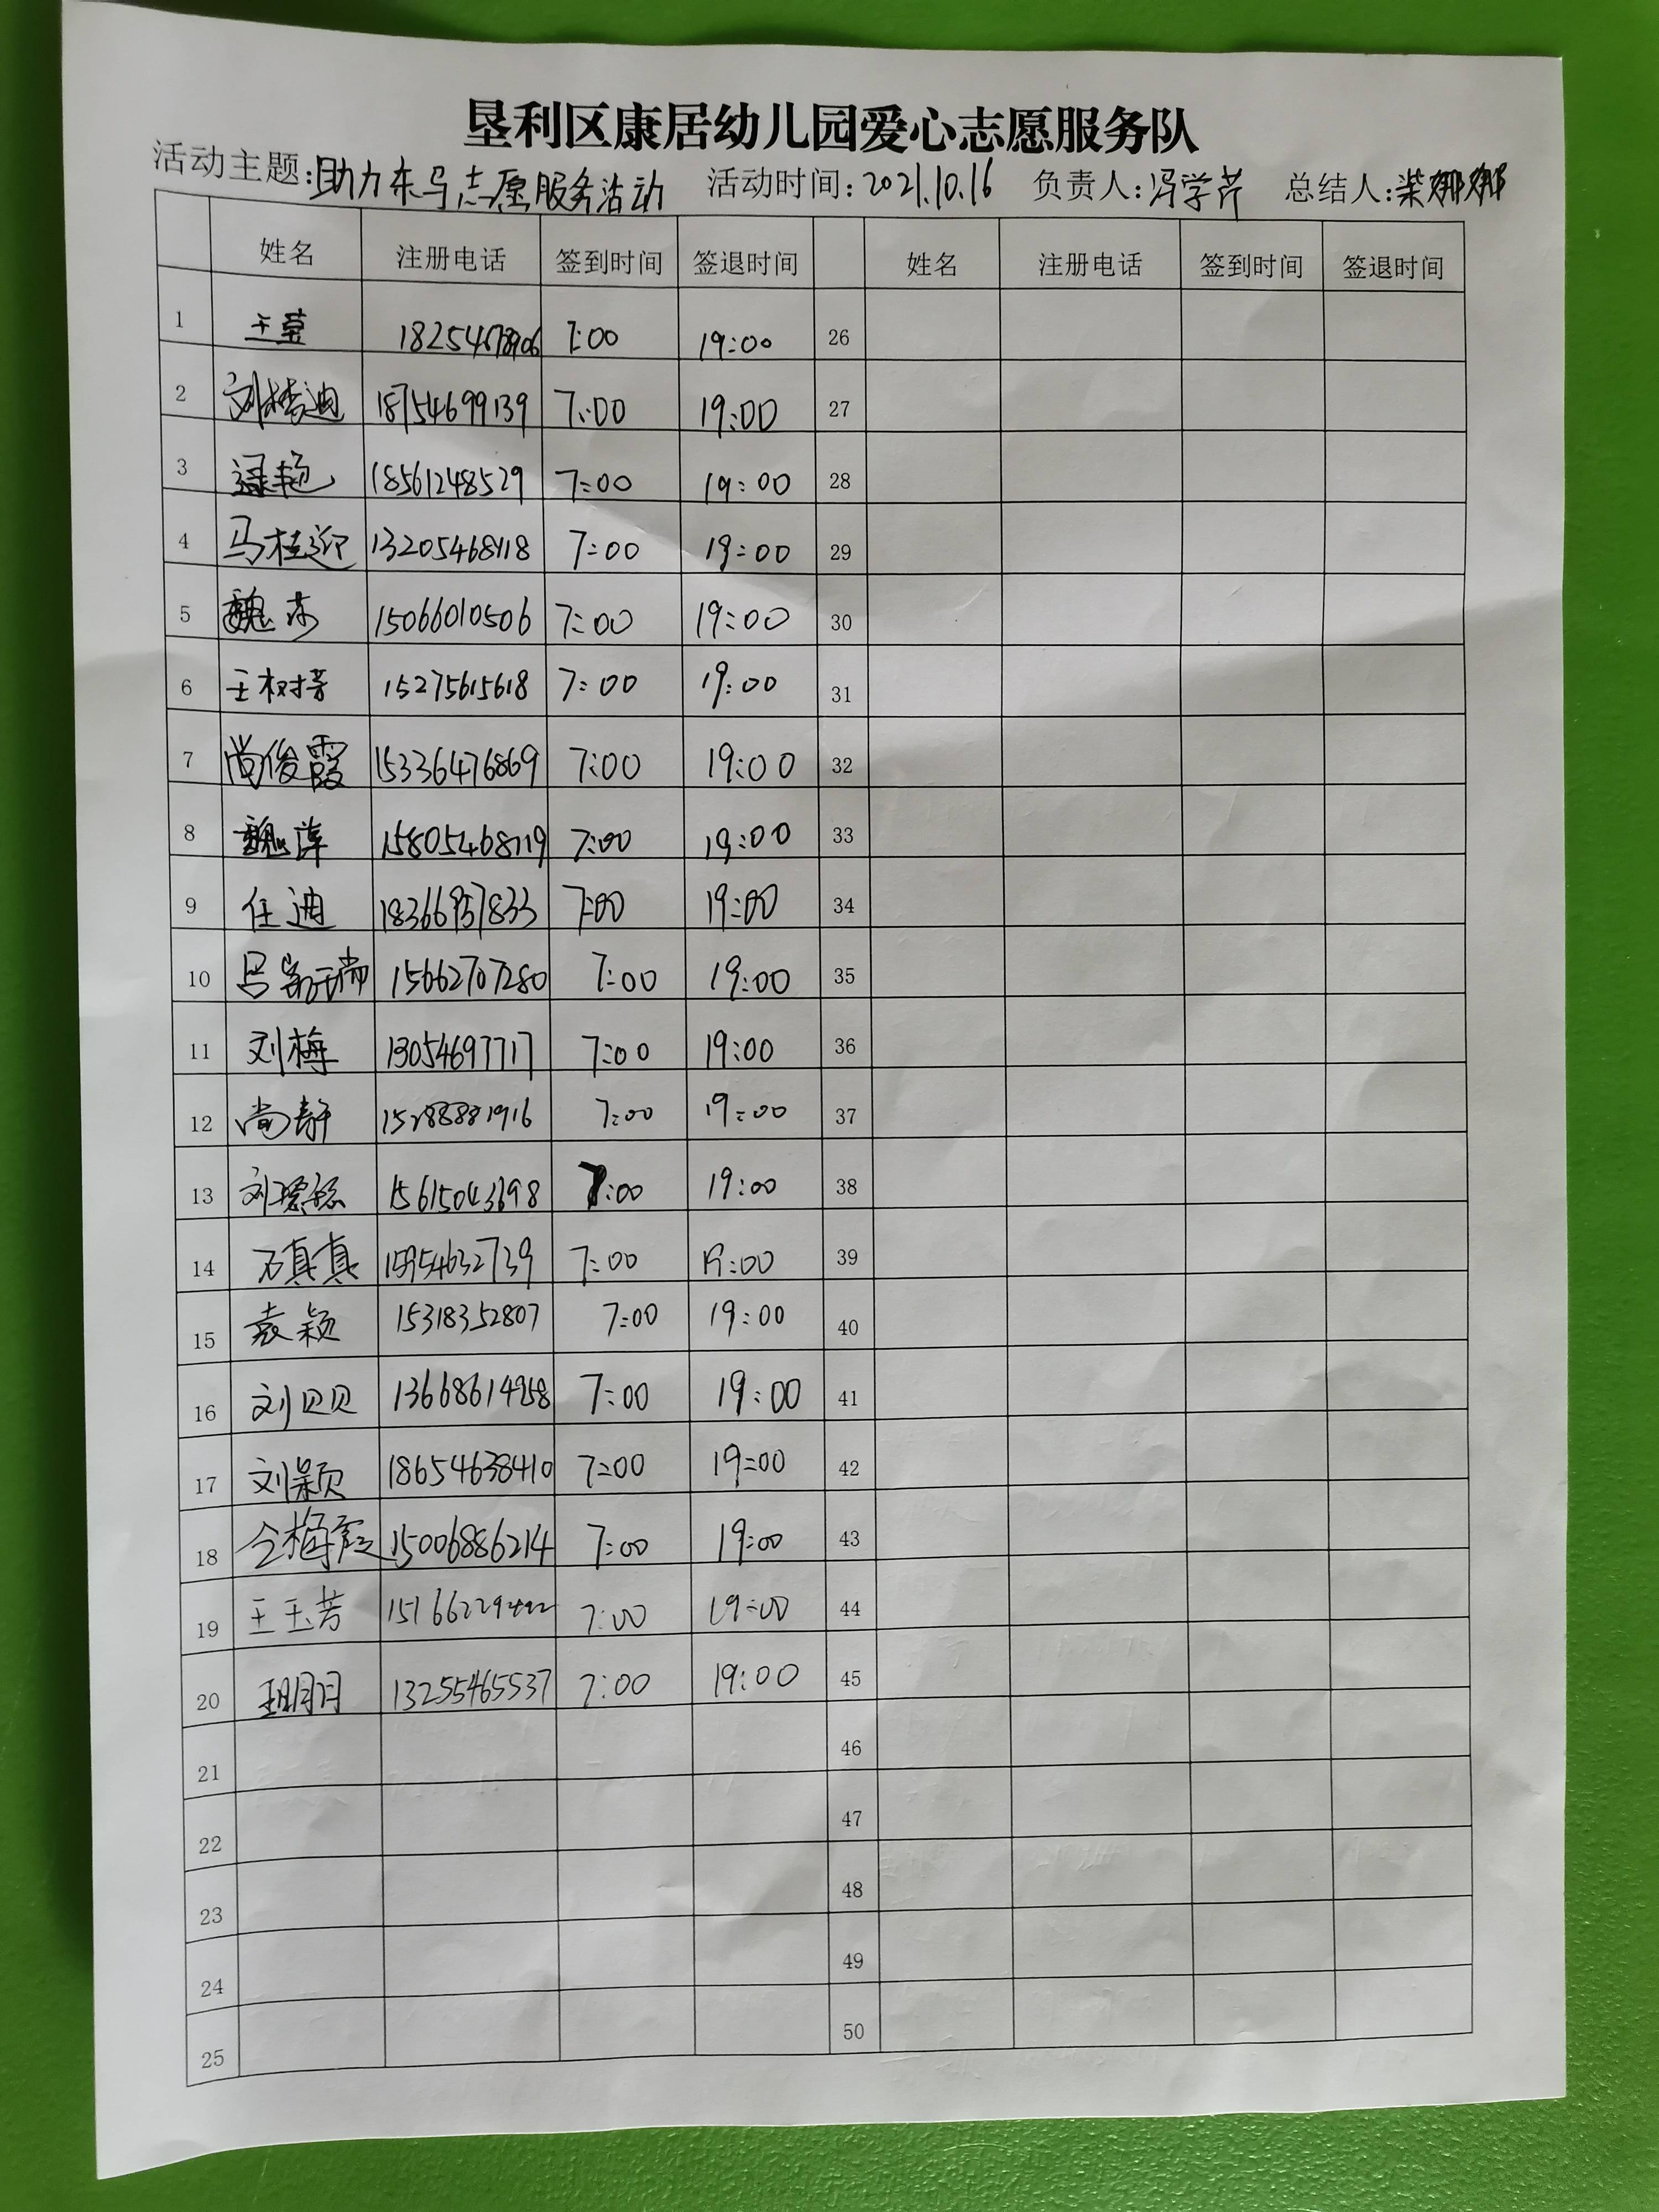 垦利区康居幼儿园爱心志愿服务队
活动主题:助力东马志愿服务活动 活动时间:2021.10.16 负责人:冯学芹 总结人:柴娜娜
姓名 注册电话 签到时间 签退时间 姓名 注册电话 签到时间 签退时间
1 7:00 19:00 26
2 18754699139 7:00 19:00 27
3 18561248529 7:00 19:00 28
4 马桂迎 13205468118 7:00 19:00 29
5 魏莎 15066010506 7:00 19:00 30
6 王树芳 15275615618 7:00 19:00 31
7 尚俊霞 15336476869 7:00 19:00 32
8 魏萍 15805468119 7:00 19:00 33
9 任迪 18366957833 7:00 19:00 34
10 15662707280 7:00 19:00 35
11 刘梅 13054697717 7:00 19:00 36
12 尚静 7:00 19:00 37
13 15615043698 7:00 19:00 38
14 石真真 15954632739 7:00 19:00 39
15 袁颖 15318352807 7:00 19:00 40
16 刘贝贝 13668614958 7:00 19:00 41
17 刘颖 18654638410 7:00 19:00 42
18 仝梅霞 15006886214 7:00 19:00 43
19 王玉芳 7:00 19:00 44
20 王明月 13255465537 7:00 19:00 45
21 46
22 47
23 48
24 49
25 50